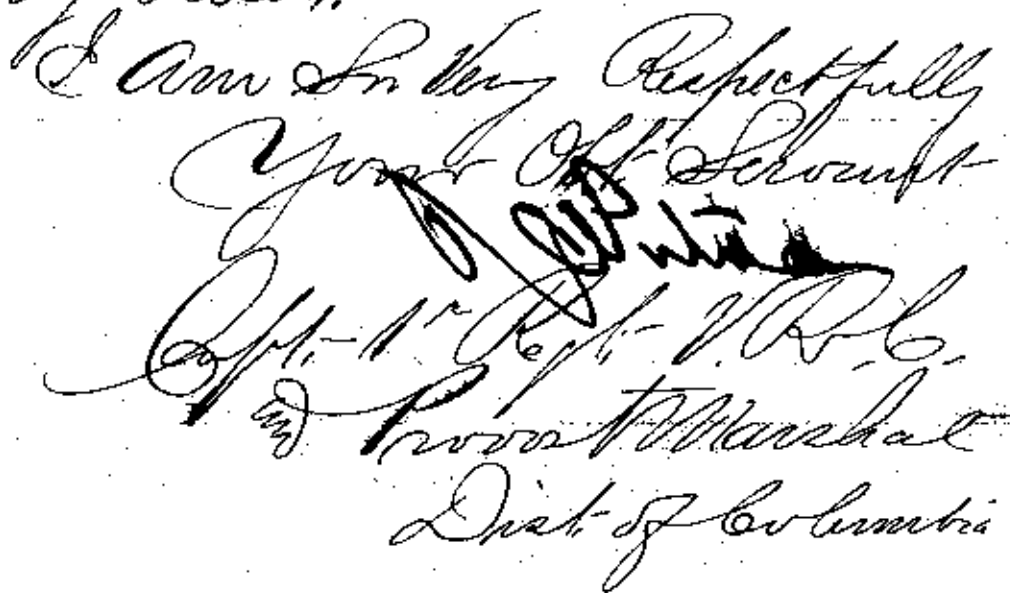 I am Sir Very Respectfully
Your Obt Servant
Capt. 1st Regt. V. R. C.
and Provost Marshal
Dist. of Columbia